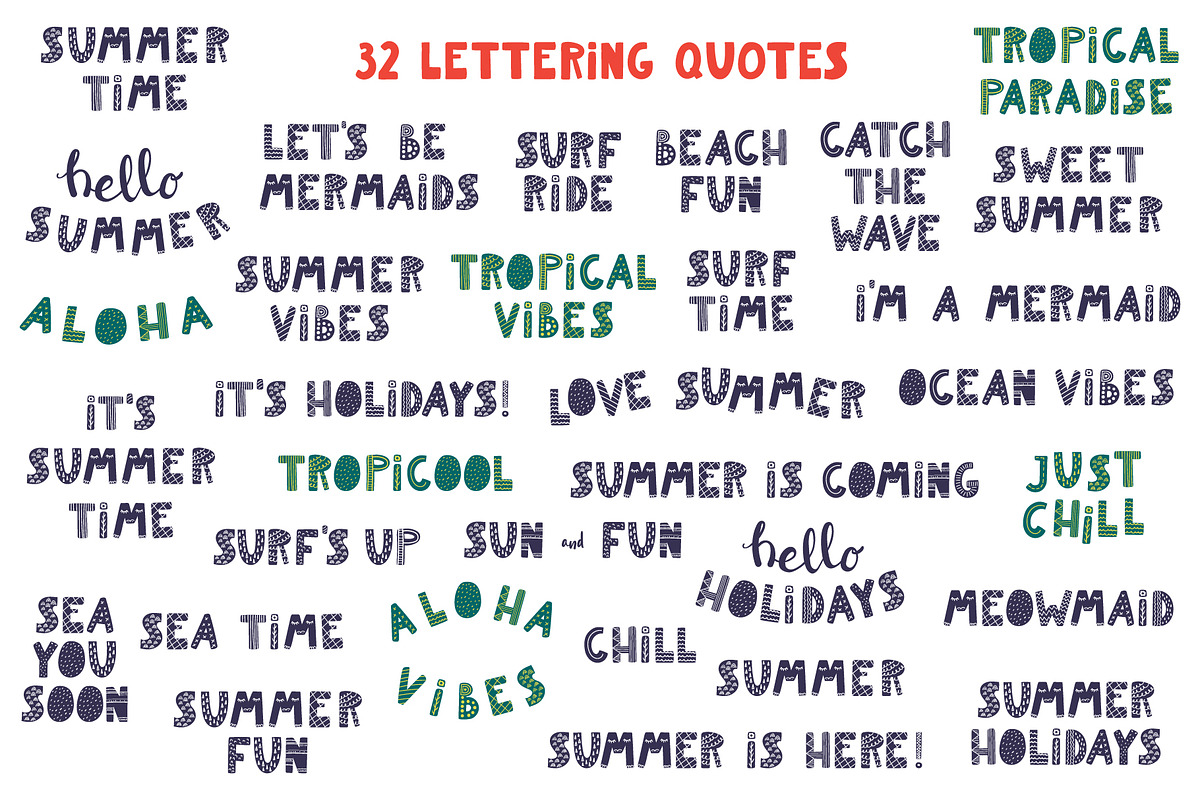 32 LETTERiNG QUOTES
SUMMER
TiME
TROPiCAL
PARADiSE
hello
SUMMER
LET'S BE
MERMAiDS
SURF
RiDE
BEACH
FUN
CATCH
THE
WAVE
SWEET
SUMMER
ALOHA
SUMMER
ViBES
TROPiCAL
ViBES
SURF
TiME
i'M A MERMAiD
iT'S
SUMMER
TiME
iT'S HOLiDAYS!
LOVE SUMMER
OCEAN ViBES
TROPiCOOL
SUMMER iS COMiNG
JUST
CHiLL
SURF'S UP
SUN and FUN
hello
HOLiDAYS
SEA
YOU
SOON
SEA TiME
ALOHA
ViBES
CHiLL
MEOWMAiD
SUMMER
SUMMER
FUN
SUMMER iS HERE!
SUMMER
HOLiDAYS